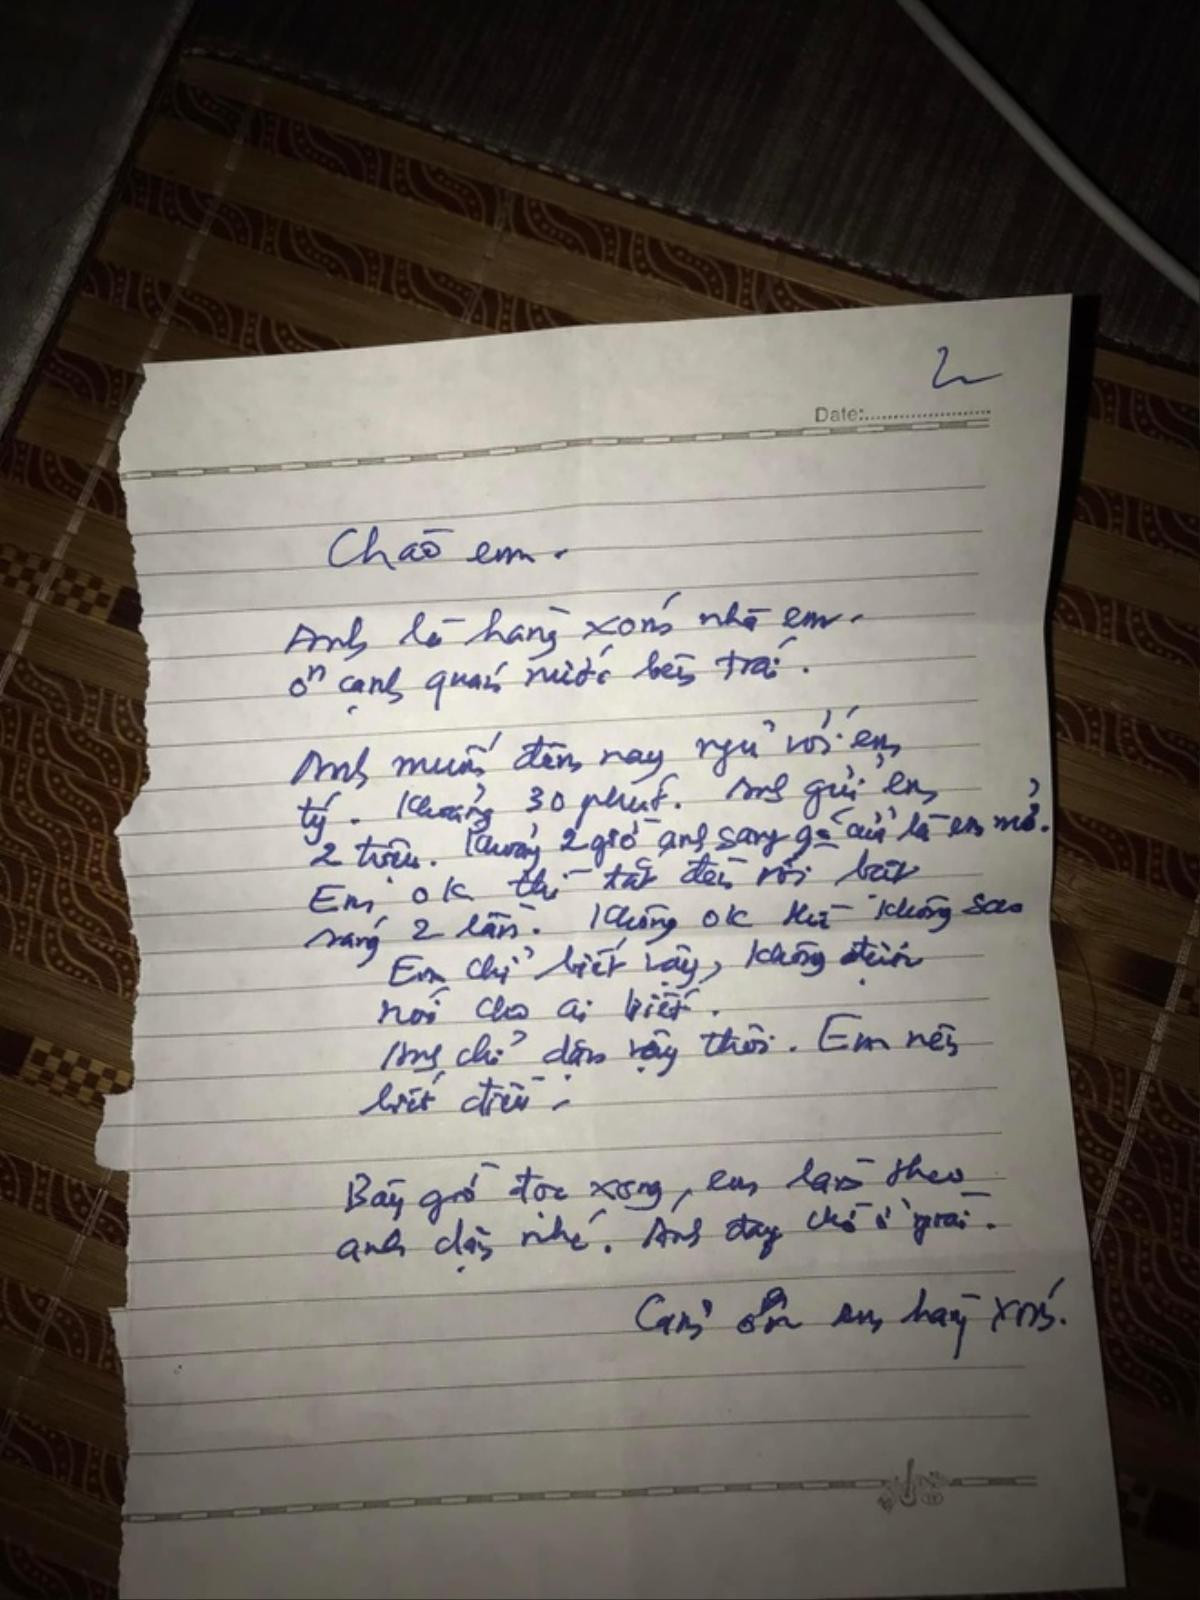 2
Date:
Chào em.
Anh là hàng xóm nhà em.
Ơn cạnh quán nước bên trái.
Anh muốn đêm nay ngủ với em
tý. Khoảng 30 phút. Anh gửi em
2 triệu. Khoảng 2 giờ anh sang gõ cửa là em mở.
Em ok thì tắt đèn rồi bật
sáng 2 lần. Không ok thì không sao
Em chỉ biết vậy, không được
nói cho ai biết.
Anh chỉ dặn vậy thôi. Em nên
biết điều.
Bây giờ đọc xong, em làm theo
anh dặn nhé. Anh đang chờ ở ngoài.
Cảm ơn em hàng xóm.